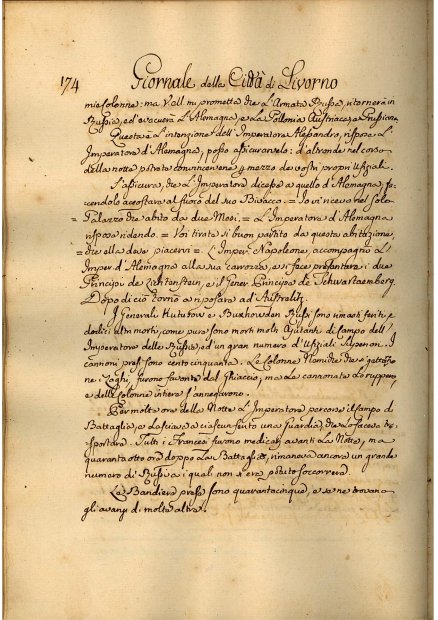 174 Giornale della Città di Livorno
mie Colonne: ma V. all. mi prometta che L'Armata Russa, ritornerà in
Russia, ed evacuerà L'Alemagna, e La Pollonia Austriaca, e Prussiana
Questa è L'intenzione dell'Imperatore Alessandro, rispose L'
Imperatore d'Alemagna, posso assicurarvelo: d'altronde nel corso
della notte potrete convincervene p mezzo de vostri proprj Ufiziali.
S'assicura, che L'Imperatore dicesse a quello d'Alemagna, fa-
cendolo accostare al fuoco del suo Bivacco = Io vi ricevo nel solo
= Palazzo che abito da due Mesi, = L'Imperatore d'Alemagna
rispose ridendo. = Voi tirate sì buon partito da questa abitazione,
= che ella deve piacervi = L'Imper. Napoleone, accompagnò L'
Imper. d'Alemagna alla sua carrozza, e si fece presentare i due
Principi de Lichtenstein, e il Gener. Principe de Schwartzemberg.
Dopo di ciò tornò a riposare ad Austerlitz.
I Generali Kutusow e Buxhowden Russi sono rimasti feriti, e
dodici altri morti, come pure sono morti molti Ajutanti di Campo dell'
Imperatore delle Russie, ed un gran numero di Ufiziali Superiori. I
cannoni presi sono centocinquanta. Le Colonne Nemiche che si gettarono
ne Laghi, furono favorite dal Ghiaccio, ma Le cannonate Lo ruppero,
e delle Colonne intere s'annegarono.
Per molte ore della Notte L'Imperatore percorse il Campo di
Battaglia, e Lasciava a ciascun ferito una Guardia, che Lo facesse tra-
sportare. Tutti i Francesi furono medicati avanti La Notte, ma
quaranta otto ore doppo La Battaglia, rimaneva ancora un grande
numero di Russi a i quali non s'era potuto soccorrere.
Le Bandiere prese sono quarantacinque, e se ne trovano
gli avanzi di molte altre.